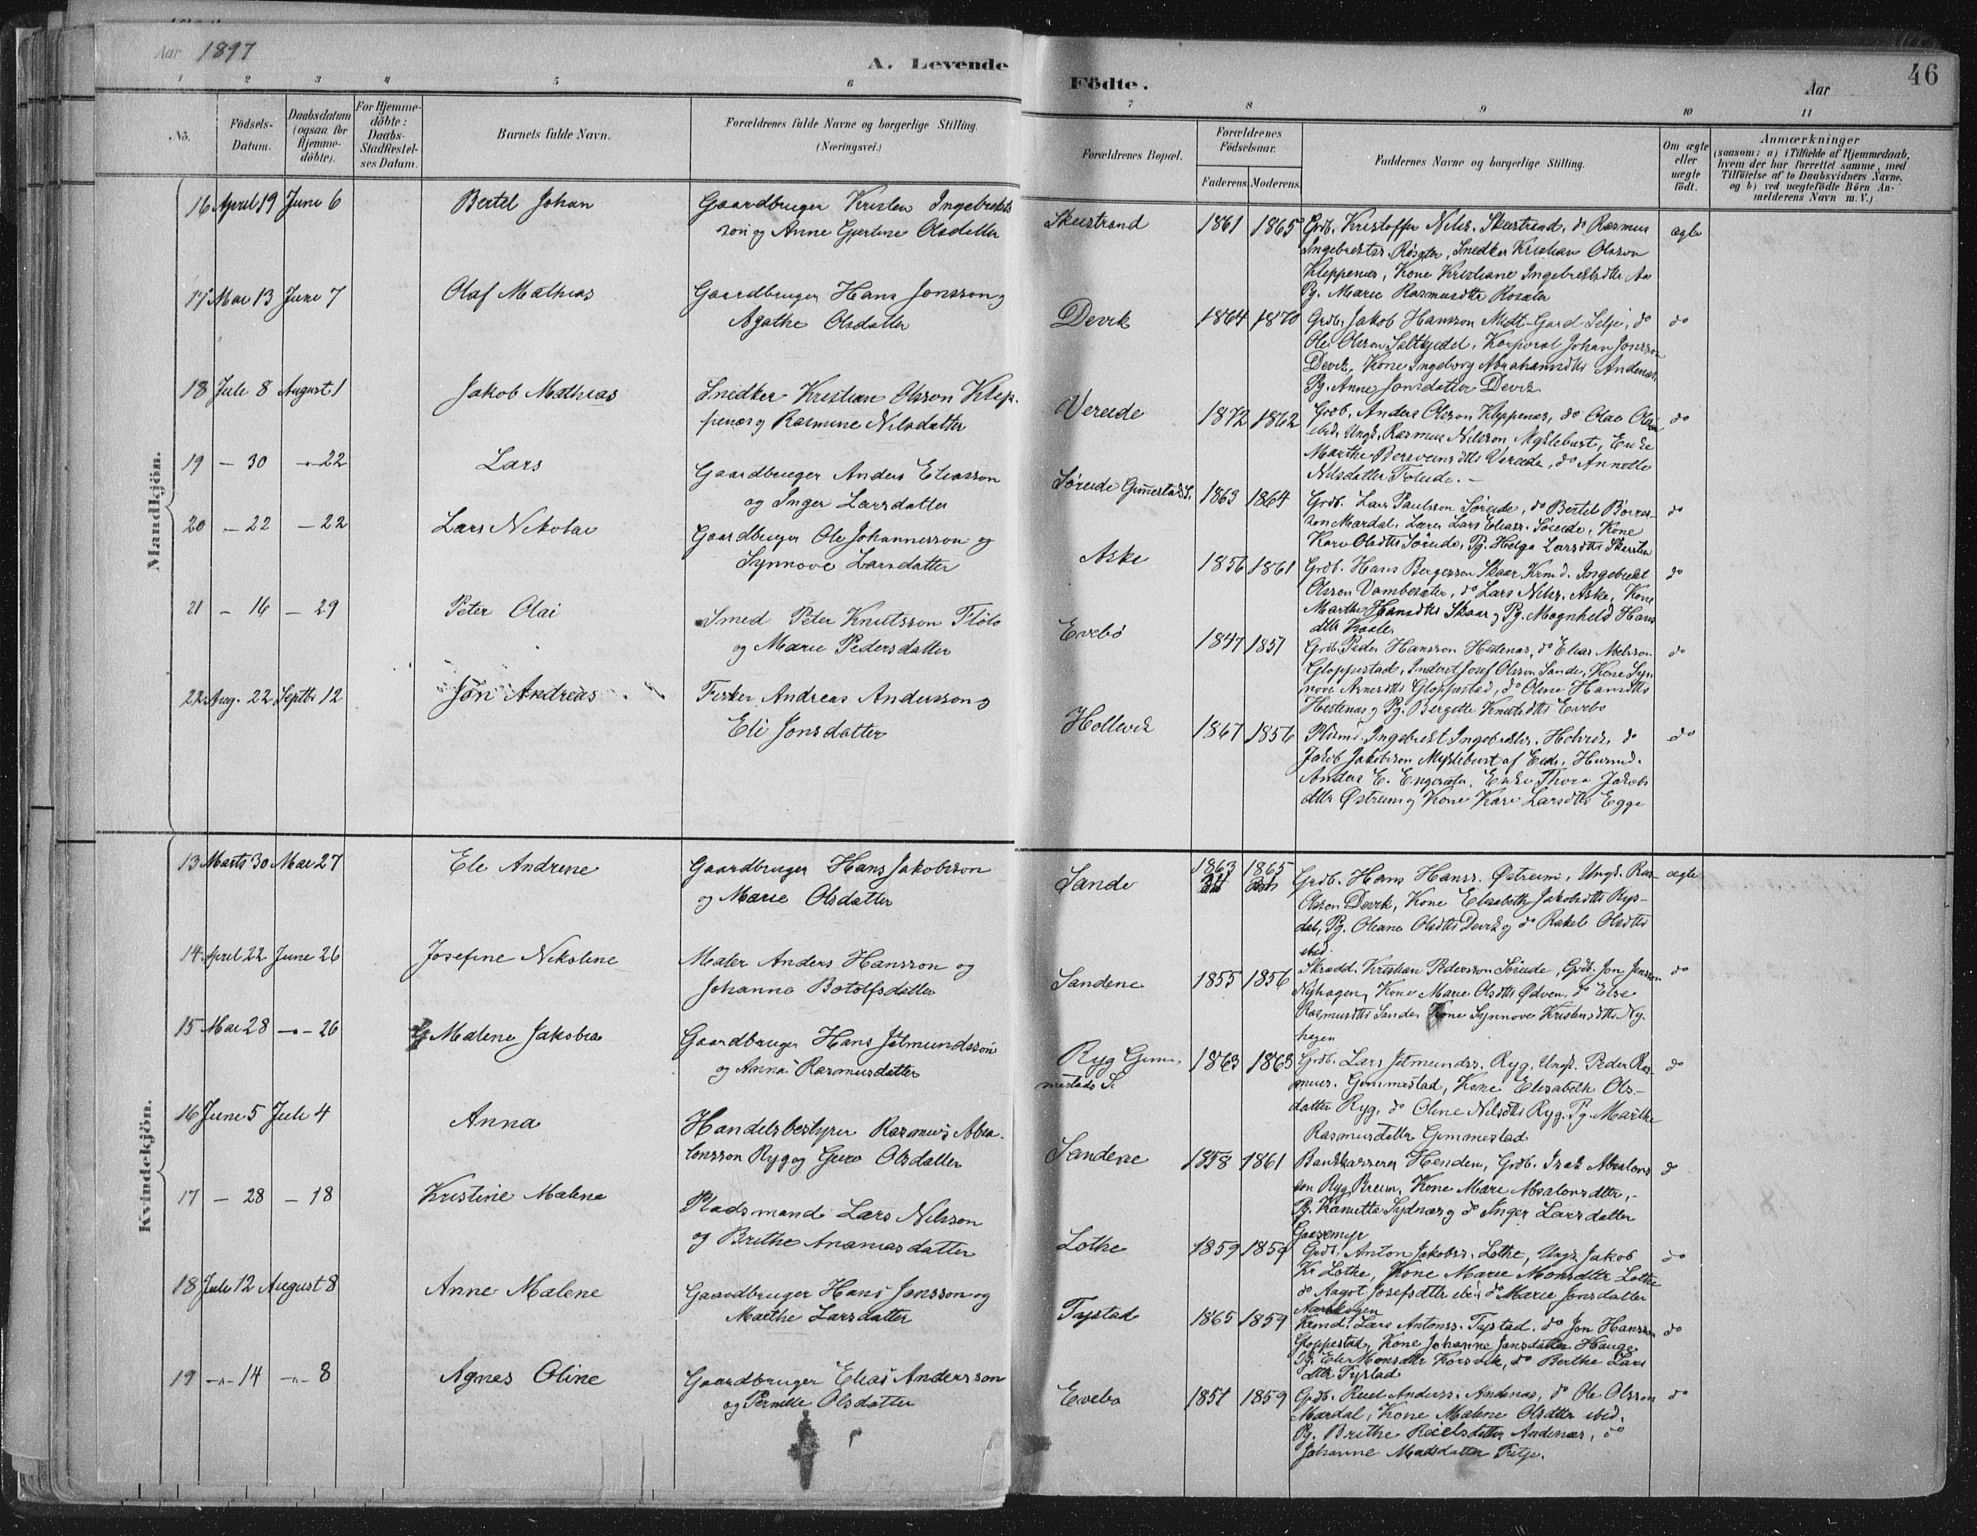 Aar 1897
A. Levende
Födte.
Aar
46
1 2 3 4 5 6 7 8 9 10 11
No.
Födsels-Datum.
Daabsdatum (ogsaa for Hjemme-döbte).
For Hjemme-döbte: Daabs-Stadfæstel-ses Datum.
Barnets fulde Navn.
Forældrenes fulde Navne og borgerlige Stilling.
(Næringsvei.)
Forældrenes Bopæl.
Forældrenes Födselsaar.
Faderens. Moderens.
Faddernes Navne og borgerlige Stilling.
Om ægte eller uægte födt.
Anmærkninger
(saasom: a) i Tilfælde af Hjemmedaab, hvem der har forrettet samme, med Tilföielse af to Daabsvidners Navne, og b) ved uægtefödte Börn An-melderens Navn m. V.)
Mandkjön.
16 April 19 Juni 6 Bertel Johan Gaardbruger Kristen Ingebrikts
son og Anne Gjertine Olsdatter
Skeistrand 1861 1865 Grdb. Kristoffer Nilss. Skeistrand, do Rasmus ægte
Ingebrigtss. Röseter, Snedker Kristian Olsson
Kleppenæs, Kone Kristiane Ingebrigtsdtr
Pg. Marie Rasmusdtr
17 Mai 13 Juni 7 Olaf Mathias Gaardbruger Hans Jonsson og
Agathe Olsdatter
Devik 1864 1870 Grdb. Jakob Hansson Midt-Gaard Selje, do do
Ole Olsson Saltkjedel, Korporal Johan Jonsson
Devik, Kone Ingeborg Abrahamsdtr Andenæs
Pg. Anne Jonsdatter Devik
18 Juli 8 August 1 Jakob Mathias Snedker Kristian Olsson Klep-
penæs og Rasmine Nilsdatter
Vereide 1872 1862 Grdb. Anders Olsson Kleppenæs, do Olai Olsson do
ibid, Ungk. Rasmus Nilsson Myklebust, Enke
Marthe Vereide, do Annette
Nilsdatter
19 – 30 – 22 Lars Gaardbruger Anders Eliasson
og Inger Larsdatter
Söreide Gimmestad S. 1863 1864 Grdb. Lars Paulsson Söreide, do Bertel do
son Mardal, Lærer Lars Eliass. Söreide, Kone
Kari Olsdtr Söreide, Pg. Helga Larsdtr
20 – 22 – 22 Lars Nikolai Gaardbruger Ole Johannesson og
Synnove Larsdatter
Aske 1856 1861 Grdb. Hans Bergesson Skaar, Krmd. Ingebrikt do
Olsson Vambeseter, do Lars Nilss. Aske, Kone
Marthe Hansdtr Skaar, Pg. Magnhild Hans
dtr
21 – 16 – 29 Peter Olai Smed Peter Knutsson Flölo
og Marie Pedersdatter
Evebö 1847 1851 Grdb. Peder Hansson Hestenæs, do Elias do
Gloppestad, Josef Olsson Sande, Kone Syn
nove Gloppestad, do Oline Hansdtr
Hestenæs, Pg. Bergitte Knutsdtr Evebö
22 Aug. 22 Septbr 12 Jon Andreas Fisker Andreas Andersson og
Eli Jonsdatter
Hollevik 1867 1856 Plsmd. Ingebrikt Ingebriktss. Holvik, do do
Jakob Jakobsson Myklebust af Eids, Husmd.
Anders E. Engeseter, Enke Thora Jakobs
dtr Østrem, Kone Kari Larsdtr Egge
Kvindekjön.
13 Marts 30 Mai 27 Eli Andrine Gaardbruger Hans Jakobsson
og Marie Olsdatter
Sande 1863 1865 Grdb. Hans Hanss. Østrem, Ungk. Ras- ægte
Olsson Devik, Kone Elisabeth Jakobsdtr Ryss-
dal, Pg. Oleane Olsdtr Devik, do Rakel Olsdtr
ibid
14 April 22 Juni 26 Josefine Nikoline Maler Anders Hansson og
Johanne Botolfsdatter
Sandene 1855 1856 Skrædd. Kristian Pedersson Söreide, Grdb. Jon Jensson do
Nyhagen, Kone Marie Olsdtr Ødven, do Else
Rasmusdtr Sande, Kone Synnove Kristensdtr Ny-
hagen
15 Mai 28 –"– 26 Malene Jakobia Gaardbruger Hans Jetmundsson
og Anna Rasmusdatter
Ryg Gimm- 1863 1863 Grdb. Lars Jetmundss. Ryg, Ungk. Peder Ras- do
mestads S. muss. Gimmestad, Kone Elisabeth Ols-
datter Ryg, do Oline Nilsdtr Ryg, Pg. Marthe
Rasmusdatter Gimmestad
16 Juni 5 Juli 4 Anna Handelsbestyrer Rasmus Absa-
lonsson Ryg og Guro Olsdatter
Sandene 1858 1861 Bankkasserer Henden, Grdb. Isak Absalons do
son Ryg Breim, Kone Mari Absalonsdtr,
Pg. do Inger Larsdatter
Gaasemyr
17 – 28 – 18 Kristine Malene Pladsmand Lars Nilsson
og Brithe Ananiasdatter
Lothe 1859 1859 Grdb. Anton Jakobss. Lothe, Ungk. Jakob do
Kr Lothe, Kone Marie Monsdtr Lothe
do Aagot Josefsdtr ib, do Marie Jonsdatter
18 Juli 12 August 8 Anne Malene Gaardbruger Hans Jonsson og
Marthe Larsdatter
Tystad 1865 1859 Krmd. Lars Antonss. Tystad, do Jon Hansson do
Gloppestad, Kone Johanne Jonsdatter Hauge
Pg. Eli Monsdtr Korsvik, do Berthe Lars
dtr Tystad
19 –"– 14 –"– 8 Agnes Oline Gaardbruger Elias Andersson
og Pernille Olsdatter
Evebö 1851 1859 Grdb. Anderss. Andenæs, do Ole Olsson do
Mardal, Kone Malene Olsdtr ibid.
Pg. Brithe Andenæs, do
Johanne Madsdatter